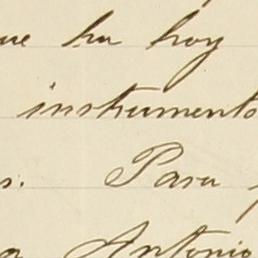 que ha hoy
instrumento
s. Para
Antonio